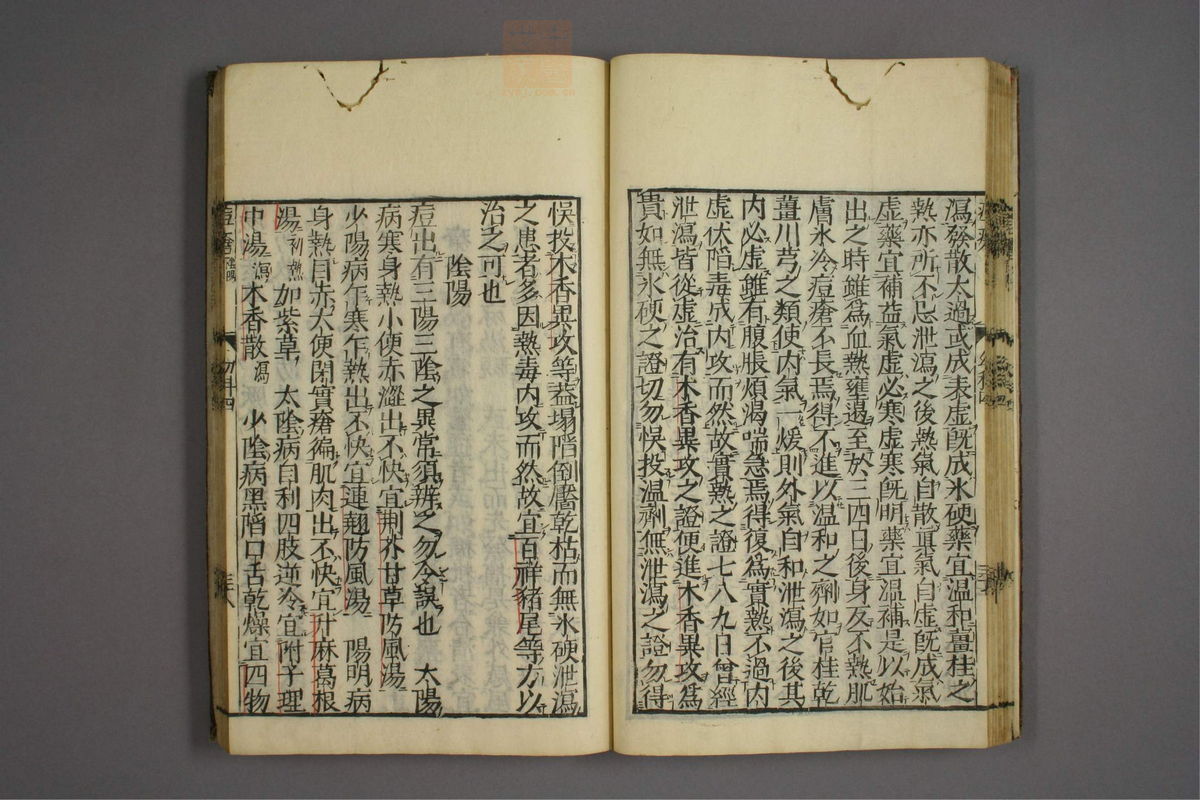 瀉發散太過或成表虛旣成氷硬藥宜温和薑桂之
熱亦所不忌泄瀉之後熱氣自散眞氣自虛旣成氣
虛藥宜補益氣虛必寒虛寒旣明藥宜温補是以始
出之時雖爲血熱壅遏至於三四日後身反不熱肌
膚氷冷痘瘡不長焉得不進以温和之劑如官桂乾
薑川芎之類使内氣一煖則外氣自和泄瀉之後其
内必虛雖有腹脹煩渴喘急焉得復爲實熱不過内
虛伏陷毒成内攻而然故實熱之證七八九日曾經
泄瀉皆從虛治有木香異攻之證便進木香異攻爲
貴如無氷硬之證切勿悞投温劑無泄瀉之證勿得
悞投木香異攻等葢塌陷倒靨乾枯而無氷硬泄瀉
之患者多因熱毒内攻而然故宜百祥豬尾等方以
治之可也
陰陽
痘出有三陽三陰之異常須辨之勿令誤也 太陽
病寒身熱小便赤澀出不快宜荆芥甘草防風湯
少陽病乍寒乍熱出不快宜連翹防風湯 陽明病
身熱目赤大便閉實瘡徧肌肉出不快宜升麻葛根
湯利熱如紫草 太陰病自利四肢逆冷宜附子理
中湯瀉木香散瀉 少陰病黑陷口舌乾燥宜四物
痘瘡 陰陽 幼科四